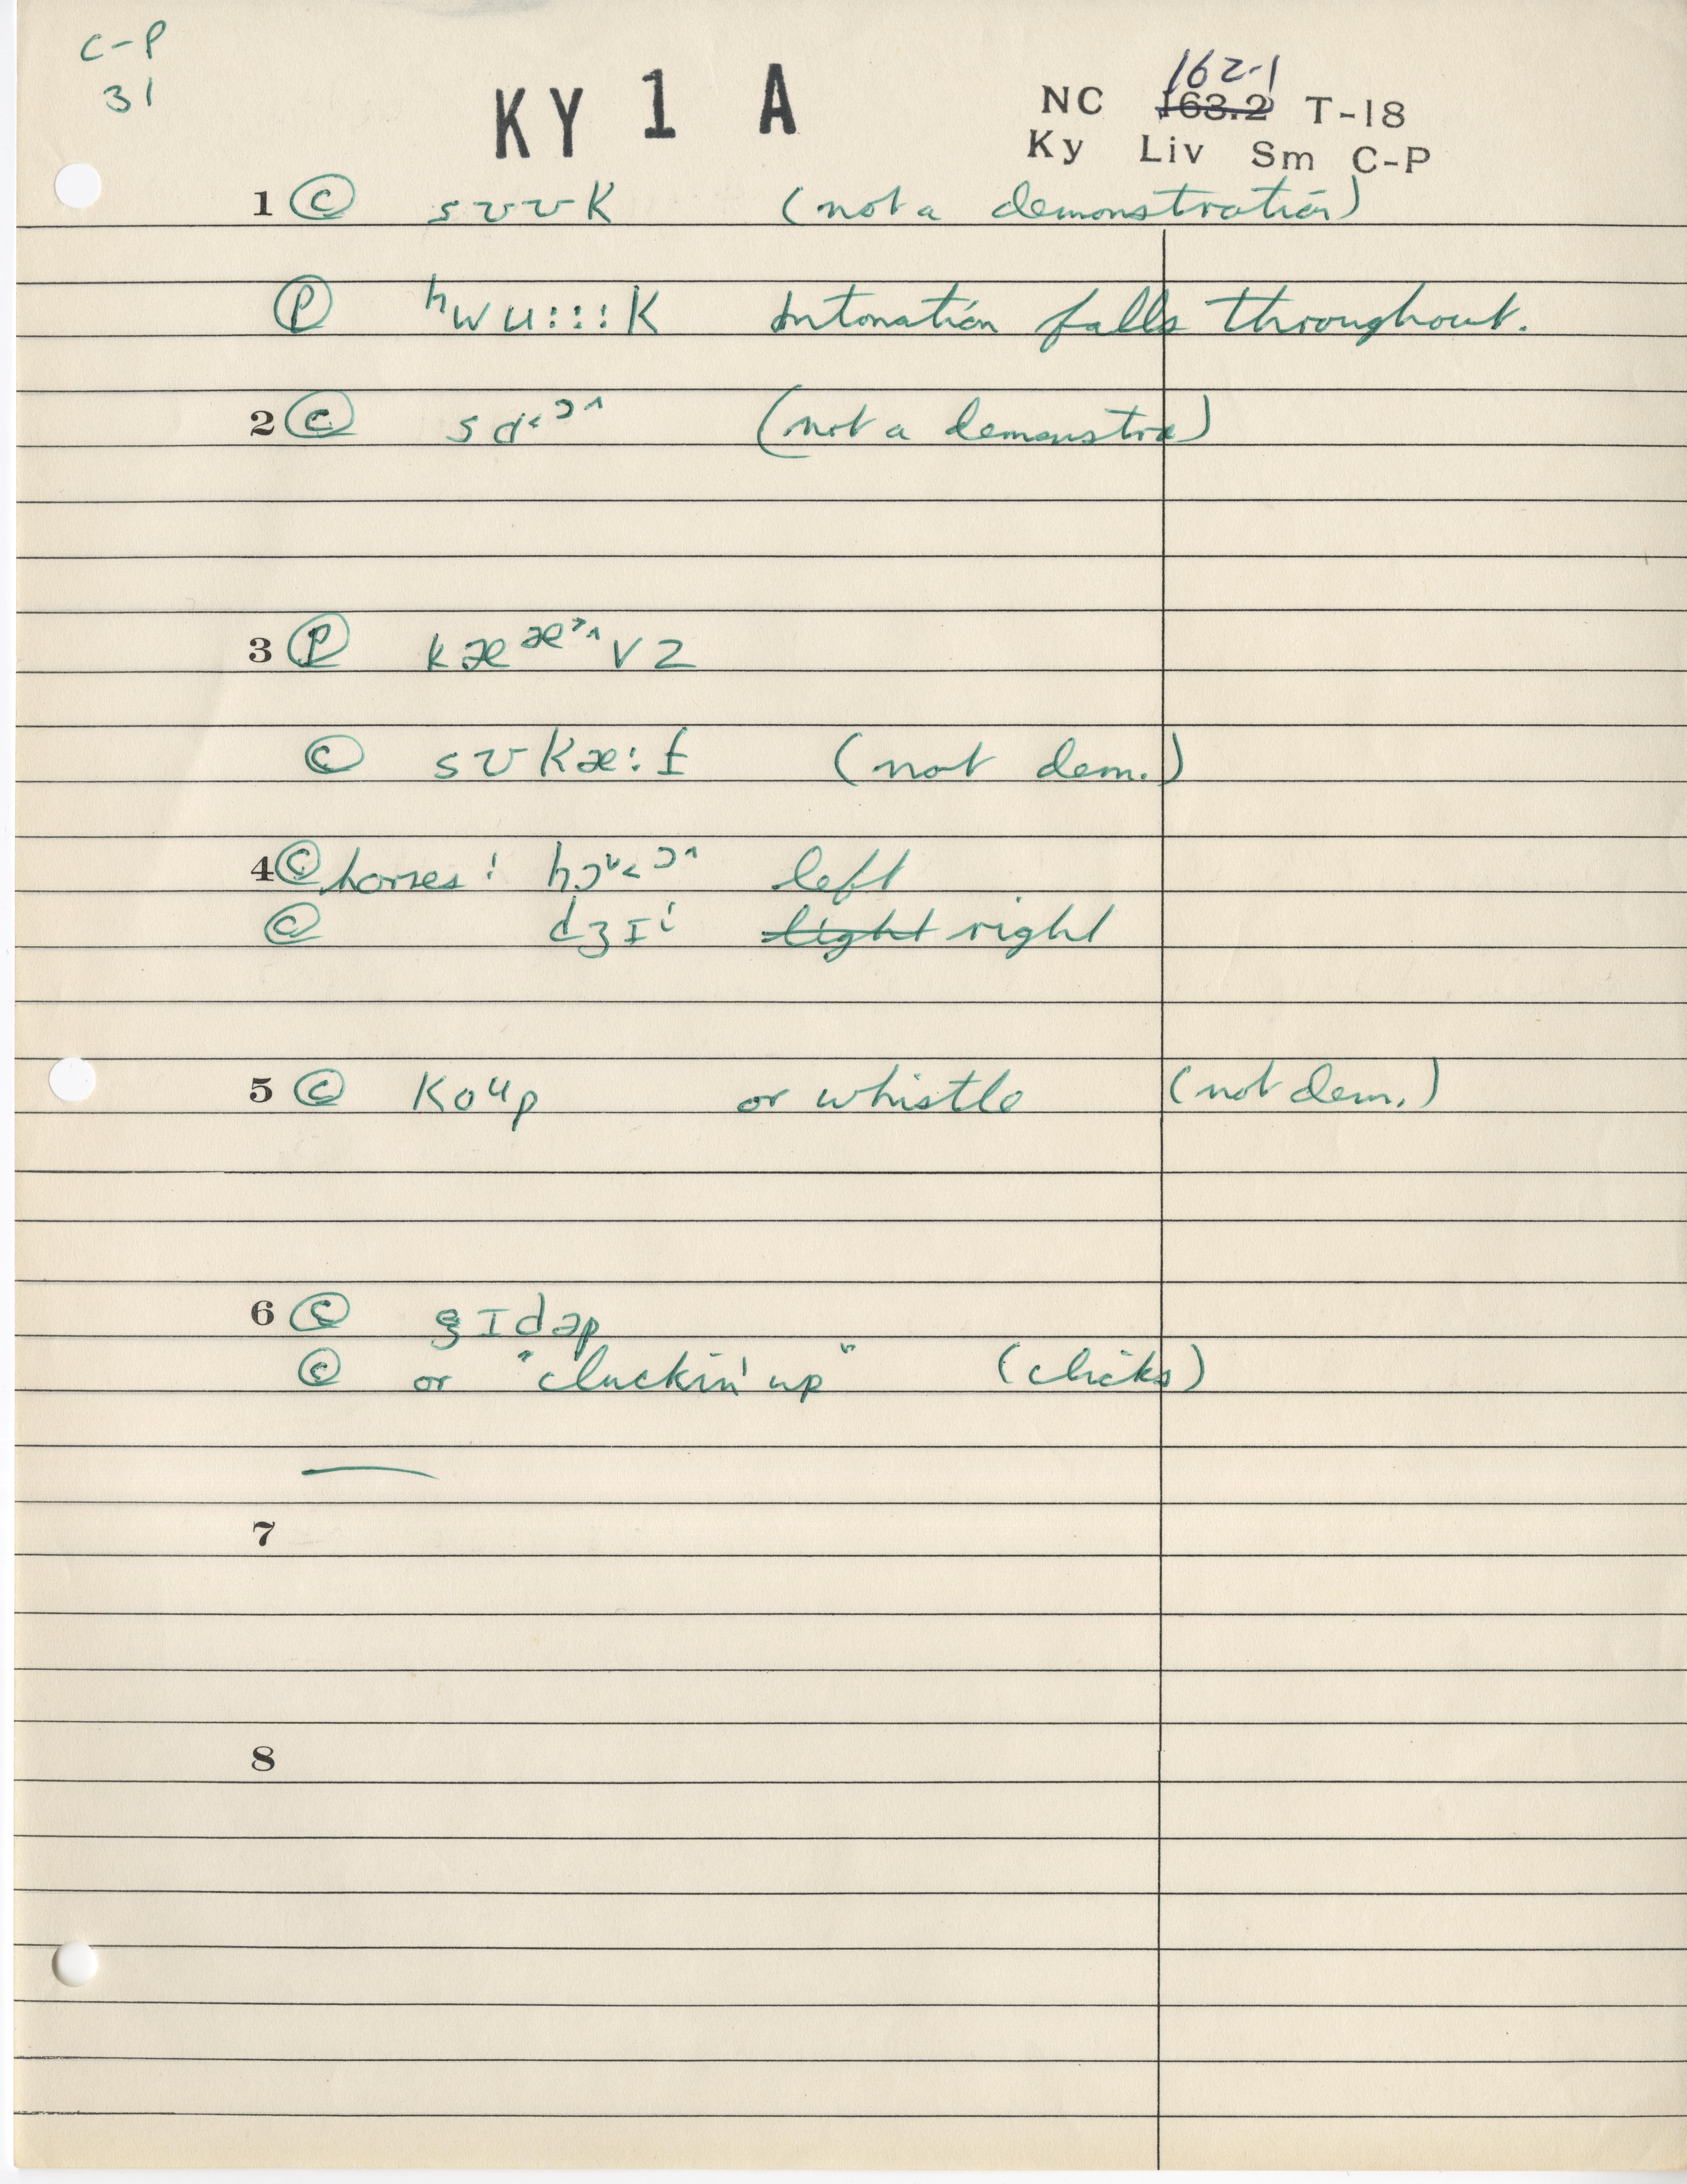 C-P
31
KY 1 A
162-1
NC ~~163.2~~ T-18
Ky Liv Sm C-P
1 Ⓒ sʊʊk (not a demonstration)
Ⓟ ʰwu:::k Intonation falls throughout.
2 Ⓒ sɑ˂ᵓ^ (not a demonstra)
3 Ⓟ kææ˃^vz
Ⓒ sʊkæ:f (not dem.)
4 Ⓒ horses: hɔ˅˂ᵓ^ left
Ⓒ dʒɪⁱ ~~light~~ right
5 Ⓒ koᵘp or whistle (not dem.)
6 Ⓒ gɪdəp
Ⓒ or "cluckin' up" (clicks)
7
8